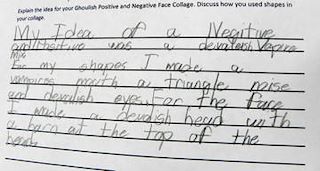 Explain the idea for your Ghoulish Positive and Negative Face Collage. Discuss how you used shapes in
your collage.
My Idea of a Negitive
and Positive was a devalish Vapire
my shapes I made a
vampires mouth a triangle noise
and devalish eyes. For the face
I made a devalish head with
a horn at the top of the
head.